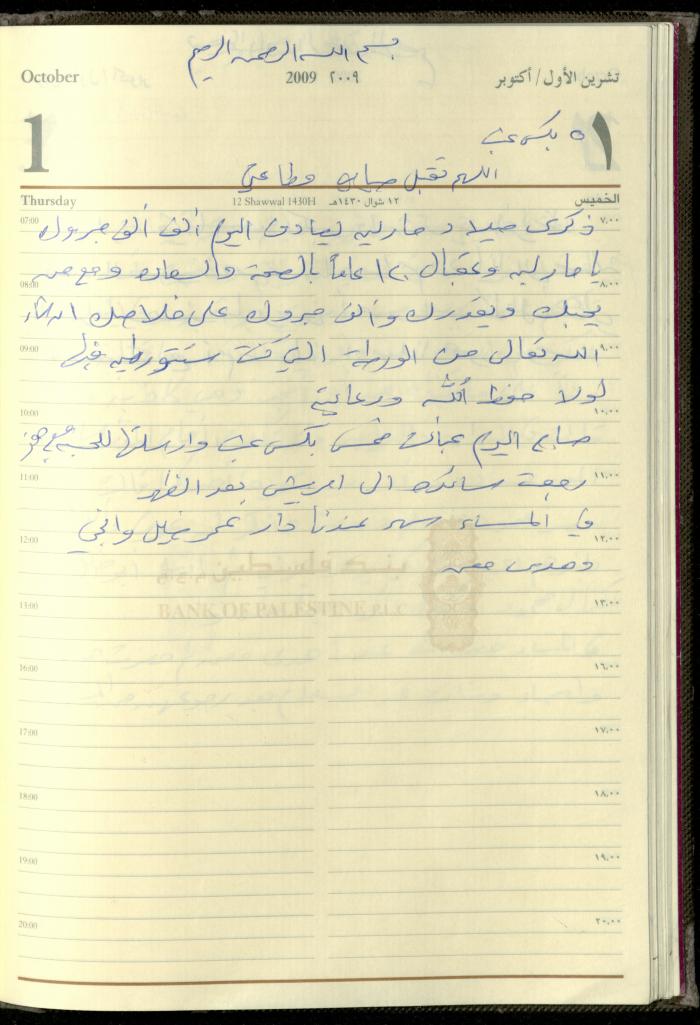 بسم الله الرحمن الرحيم
October 2009 ٢٠٠٩ تشرين الأول/أكتوبر
1 ١
٥ بكس عنب
اللهم تقبل صيامي وطاعتي
Thursday 12 Shawwal 1430H ١٢ شوال ١٤٣٠هـ الخميس
07:00 ٧,٠٠
ذكرى ميلاد مارليه يصادف اليوم ألف ألف مبروك
يا مارليه وعقبال ١٢٠ عاماً بالصحة والسعادة ومع من
08:00 ٨,٠٠
يحبك ويقدرك وألف مبروك على خلاصك ان شاء
09:00 ٩,٠٠
الله تعالى من الورطة التي كنت ستتورطين فيها
لولا حفظ الله ورعايته
10:00 ١٠,٠٠
صباح اليوم عبأت خمس بكس عنب وارسلتها للحسبه مع
11:00 ١١,٠٠
رجعت الى بعد الظهر
في المساء سهر عندنا دار عمر واختي
12:00 ١٢,٠٠
وهدى
بنك فلسطين م.ع.م
13:00 ١٣,٠٠
BANK OF PALESTINE P.L.C
16:00 ١٦,٠٠
17:00 ١٧,٠٠
18:00 ١٨,٠٠
19:00 ١٩,٠٠
20:00 ٢٠,٠٠